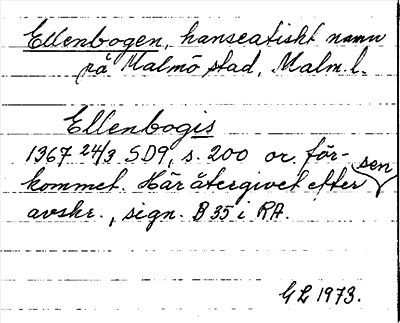 Ellenbogen, hanseatiskt namn
på Malmö stad, Malm. l.
Ellenbogis
1367 24/3 SD9, s. 200 or. för-
kommet. Här återgivet efter sen
avskr., sign. B 35 i RA.
GL 1973.